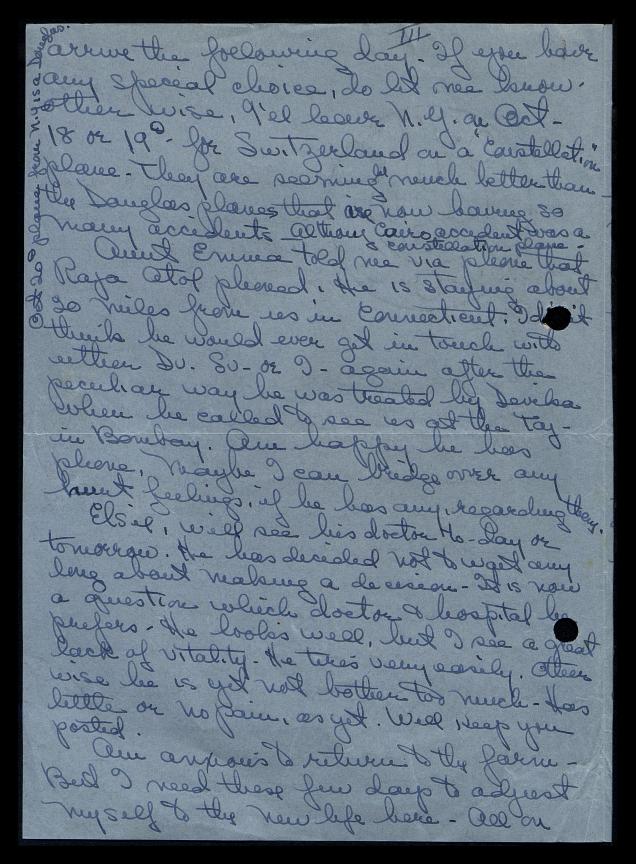 III
arrive the following day. If you have
any special choice, do let me know.
Other wise, I'el leave N.Y. on Oct-
18 or 19th for Switzerland on a "Constellation"
plane. They are seeming much better than
the Douglas planes that are now having so
many accidents Cairo accident was a
constellation plane -
Aunt Emma told me via phone that
Raja phoned, He is staying about
20 miles from us in Connecticut. I
think he would ever get in touch with
either Dr. Sv- or I - again after the
peculiar way he was treated by Devika
when he called to see us at the Taj-
in Bombay. Am happy he has
phone, Maybe I can bridge over any
hurt feelings, if he has any, regarding them.
Elsie, will see his doctor to-day or
tomorrow. He has decided not to wait any
long about making a decision - It is now
a question which doctor & hospital he
prefers. He looks well, but I see a great
lack of vitality - He tires very easily. Other
wise he is yet not bother too much - Has
little or no pain, as yet. Will keep you
posted.
Am anxious to return to the farm -
But I need these few days to adjust
myself to the new life here - All on
Oct 20th plane from N.Y is a Douglas.